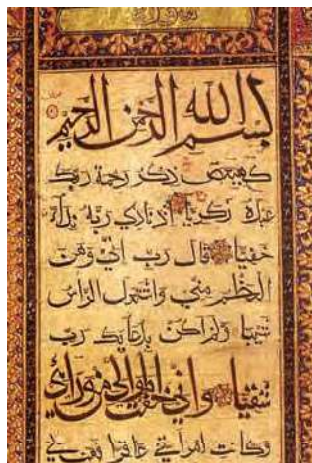 بسم الله الرحمن الرحيم
كهيعص ذكر رحمة ربك
عبده زكريا اذ نادى ربه نداء
خفيا قال رب اني وهن
العظم مني واشتعل الراس
شيبا ولم اكن بدعائك رب
شقيا واني خفت الموالي من وراءي
وكانت امراتي عاقرا فهب لي